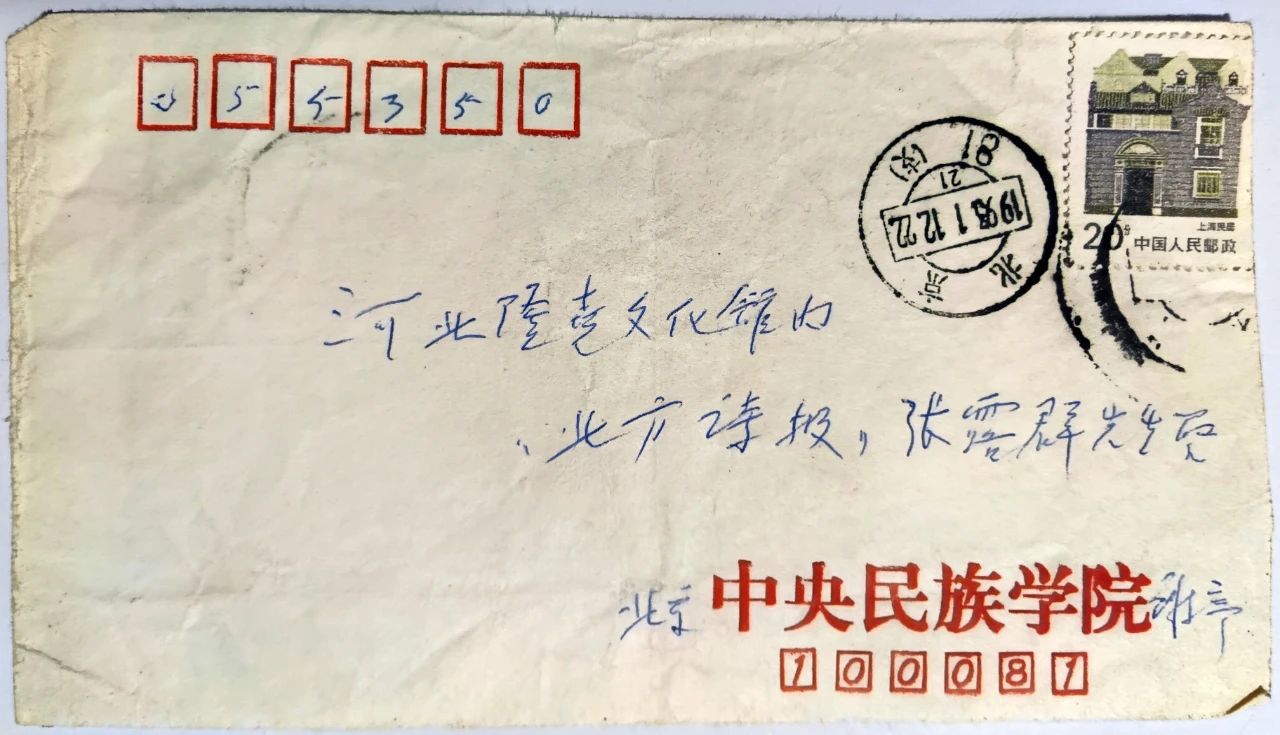 055350
上海民居
20分 中国人民邮政
北京
1993.1.12.22
21
(支)
81
河北隆尧文化馆内
“北方诗报”张露群先生收
北京 中央民族学院
100081